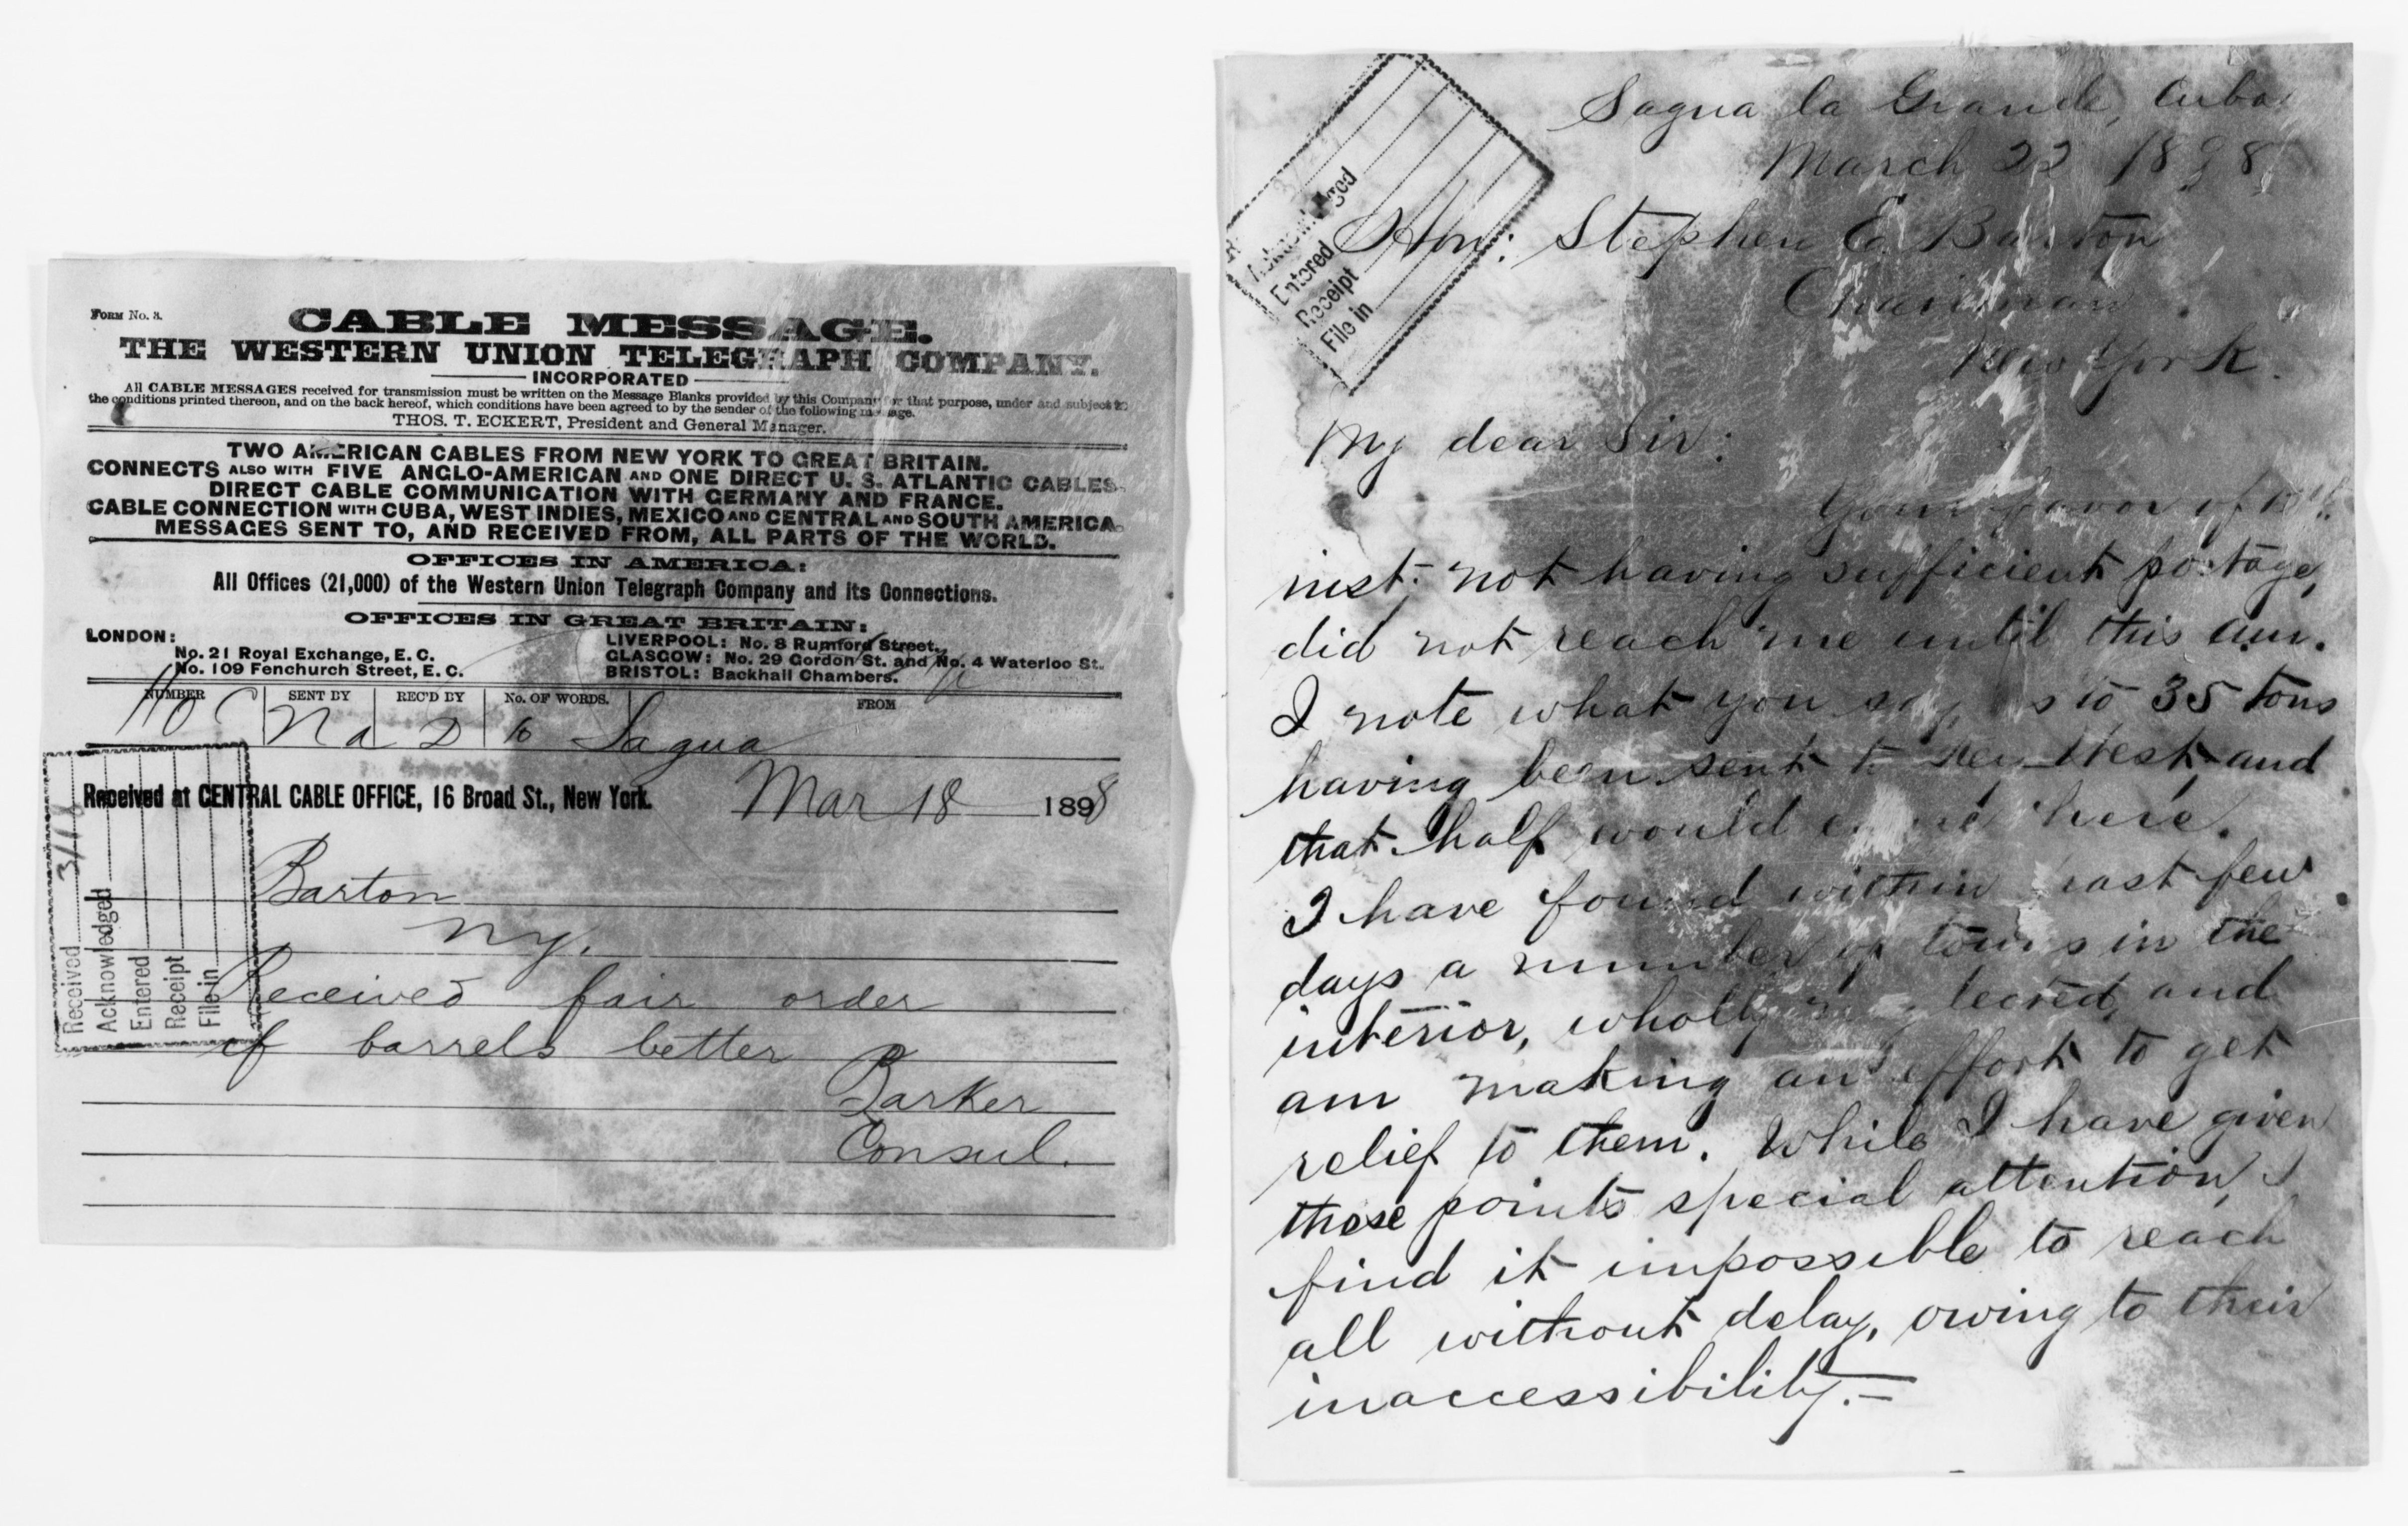 Form No. 3.
CABLE MESSAGE.
THE WESTERN UNION TELEGRAPH COMPANY.
INCORPORATED
All CABLE MESSAGES received for transmission must be written on the Message Blanks provided by this Company for that purpose, under and subject to
the conditions printed thereon, and on the back hereof, which conditions have been agreed to by the sender of the following message.
THOS. T. ECKERT, President and General Manager.
TWO AMERICAN CABLES FROM NEW YORK TO GREAT BRITAIN.
CONNECTS ALSO WITH FIVE ANGLO-AMERICAN AND ONE DIRECT U. S. ATLANTIC CABLES.
DIRECT CABLE COMMUNICATION WITH GERMANY AND FRANCE.
CABLE CONNECTION WITH CUBA, WEST INDIES, MEXICO AND CENTRAL AND SOUTH AMERICA.
MESSAGES SENT TO, AND RECEIVED FROM, ALL PARTS OF THE WORLD.
OFFICES IN AMERICA:
All Offices (21,000) of the Western Union Telegraph Company and its Connections.
OFFICES IN GREAT BRITAIN:
LONDON:
No. 21 Royal Exchange, E. C.
No. 109 Fenchurch Street, E. C.
LIVERPOOL: No. 8 Rumford Street.
GLASGOW: No. 29 Gordon St. and No. 4 Waterloo St.
BRISTOL: Backhall Chambers.
NUMBER SENT BY REC'D BY No. OF WORDS. FROM
110 C Na D Sagua
Received at CENTRAL CABLE OFFICE, 16 Broad St., New York. Mar 18 1898
Received 3/18
Acknowledged
Entered
Receipt
File in
Barton
Ny.
Received fair order
if barrels better
Barker
Consul.
Acknowledged
Entered
Receipt
File in
Sagua la Grande, Cuba
March 22 1898
Hon: Stephen E. Barton
Chairman.
New York.
My dear Sir:
Your favor of
inst: not having sufficient postage,
did not reach me until this am.
I note what you say as to 35 tons
having been sent to Key West and
that half would here.
I have found within last few
days a number of towns in the
interior, wholly and
am making an effort to get
relief to them. While I have given
these points special attention, I
find it impossible to reach
all without delay, owing to their
inaccessibility.—